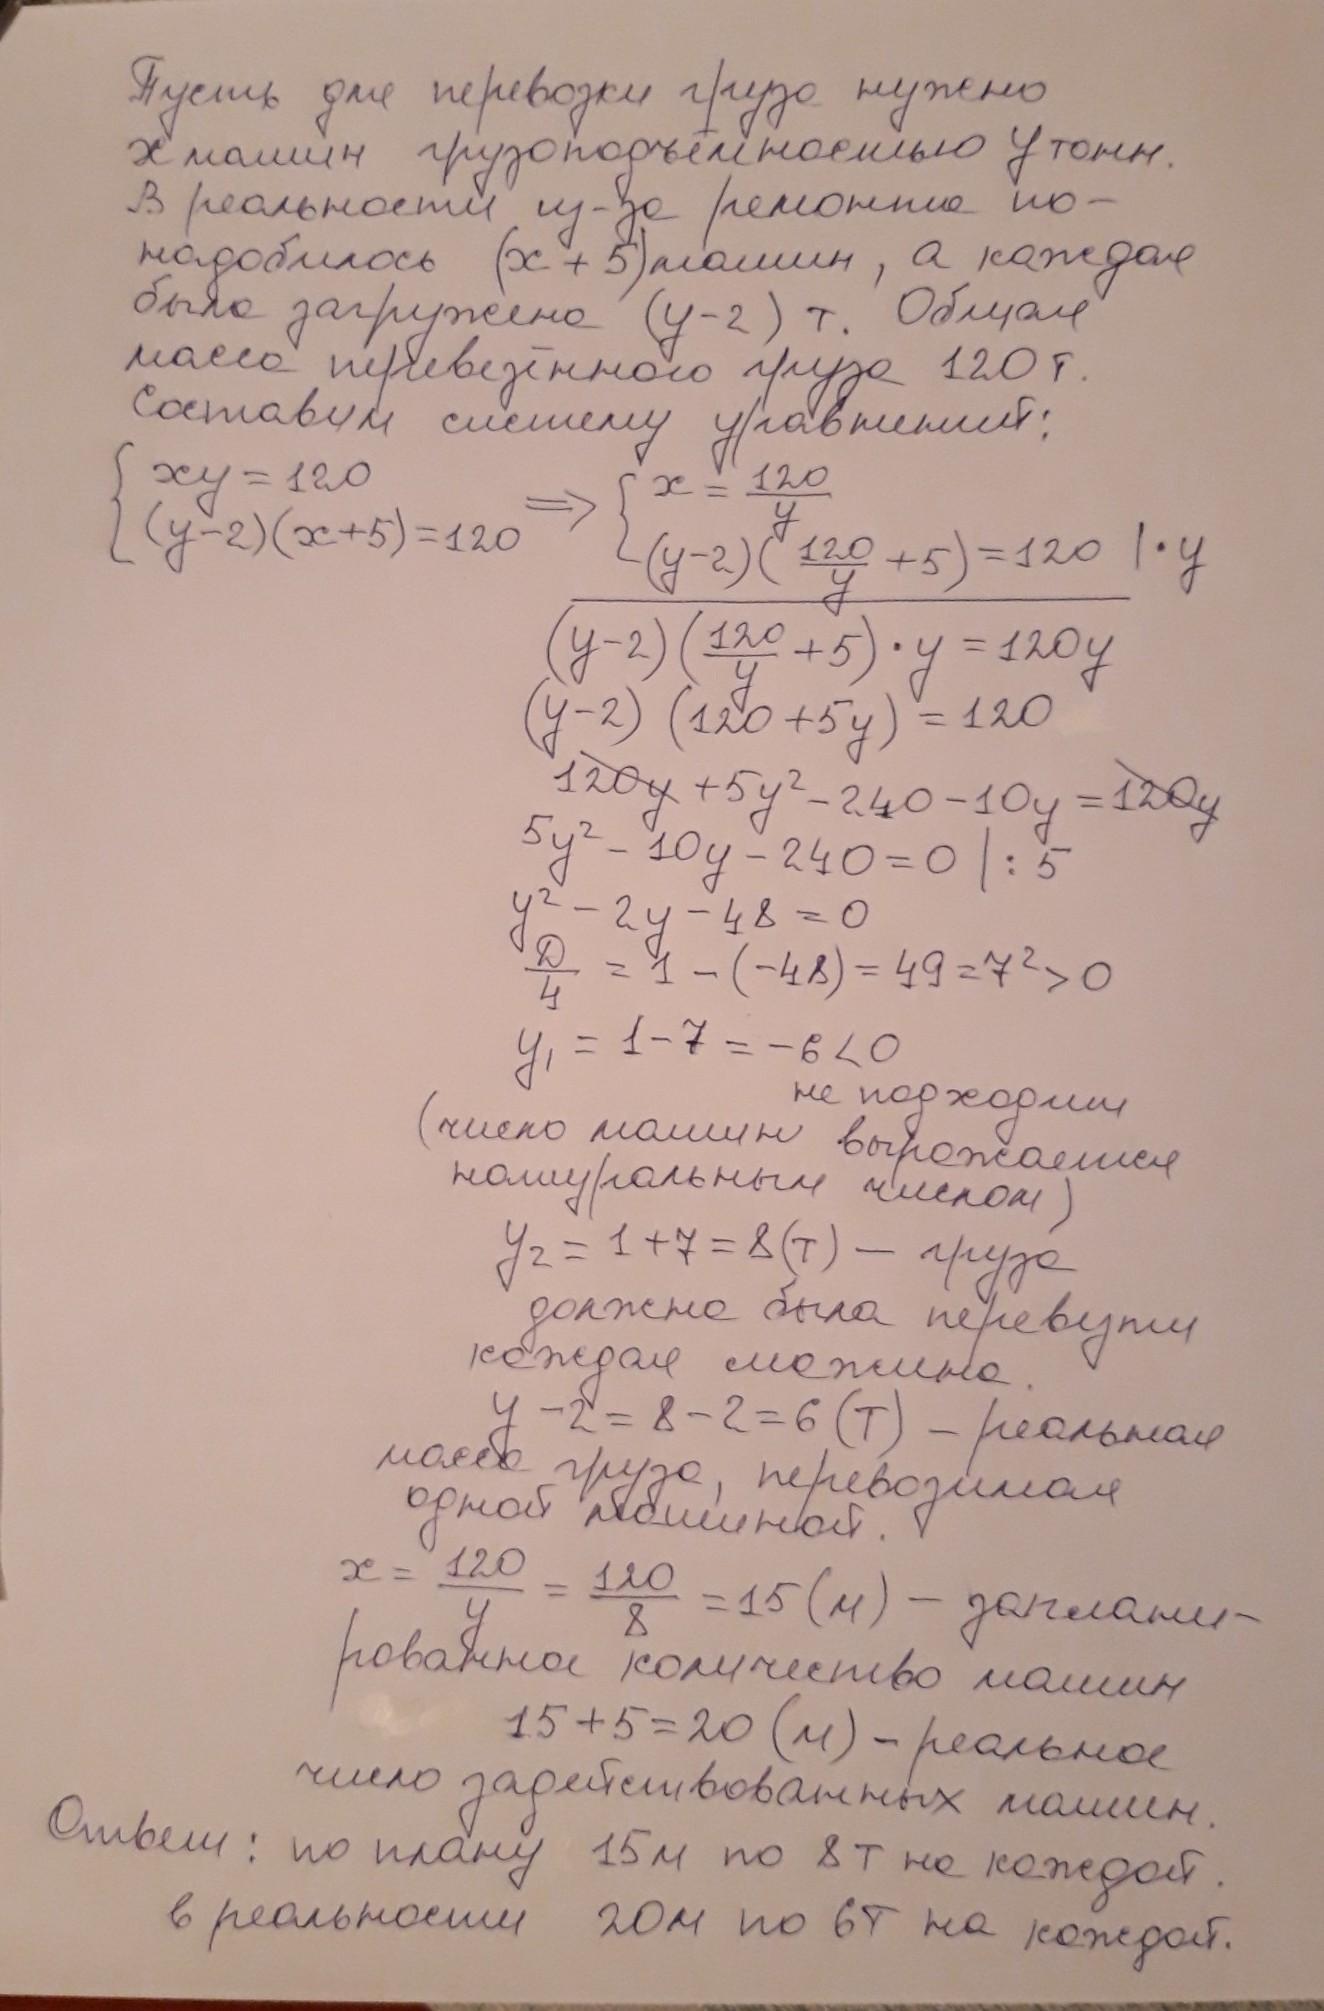 Пусть для перевозки груза нужно
x машин грузоподъёмностью y тонн.
В реальности из-за ремонта по-
надобилось (x + 5) машин, а каждая
была загружена (y-2) т. Общая
масса перевезённого груза 120 т.
Составим систему уравнений:
{ xy = 120 ⇒ { x = 120/y
(y-2)(x+5)=120 (y-2)(120/y + 5) = 120 | · y
(y-2)(120/y + 5) · y = 120y
(y-2) (120+5y) = 120
120y + 5y² - 240 - 10y = 120y
5y² - 10y - 240 = 0 | : 5
y² - 2y - 48 = 0
D/4 = 1 - (-48) = 49 = 7² > 0
y₁ = 1-7 = -6 < 0
не подходит
(число машин выражается
натуральным числом)
y₂ = 1+7 = 8(т) — груза
должна была перевезти
каждая машина.
y - 2 = 8 - 2 = 6 (т) — реальная
масса груза, перевозимая
одной машиной.
x = 120/y = 120/8 = 15 (м) — заплани-
рованное количество машин
15 + 5 = 20 (м) — реальное
число задействованных машин.
Ответ: по плану 15м по 8т на каждой.
в реальности 20м по 6т на каждой.